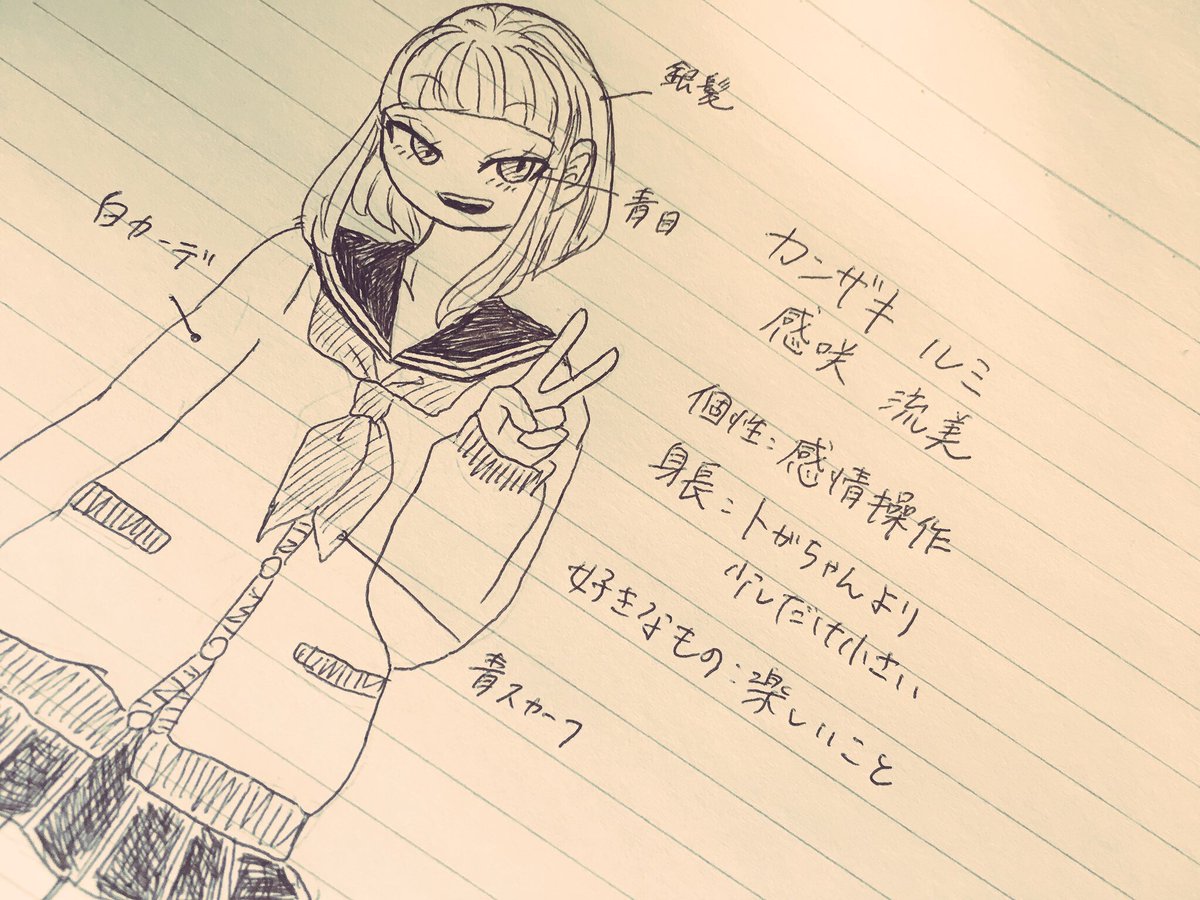 銀髪
青目
白カーデ
カンザキ ルミ
感咲 流美
個性：感情操作
身長：トガちゃんより
少しだけ小さい
好きなもの：楽しいこと
青スカーフ